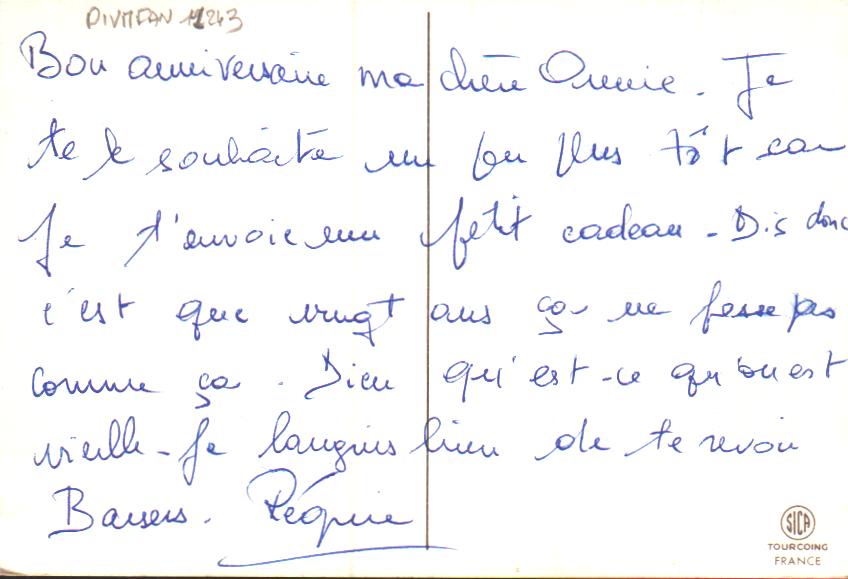 DIVMFAN 11243
Bon anniversaire ma chère Annie. Je
te le souhaite un peu plus tôt car
Je t'envoie un petit cadeau - Dis donc
c'est que vingt ans ça ne passe pas
comme ça. Dieu qu'est-ce qu'on est
vieille - Je languis bien de te revoir
Baisers.
SICA
TOURCOING
FRANCE